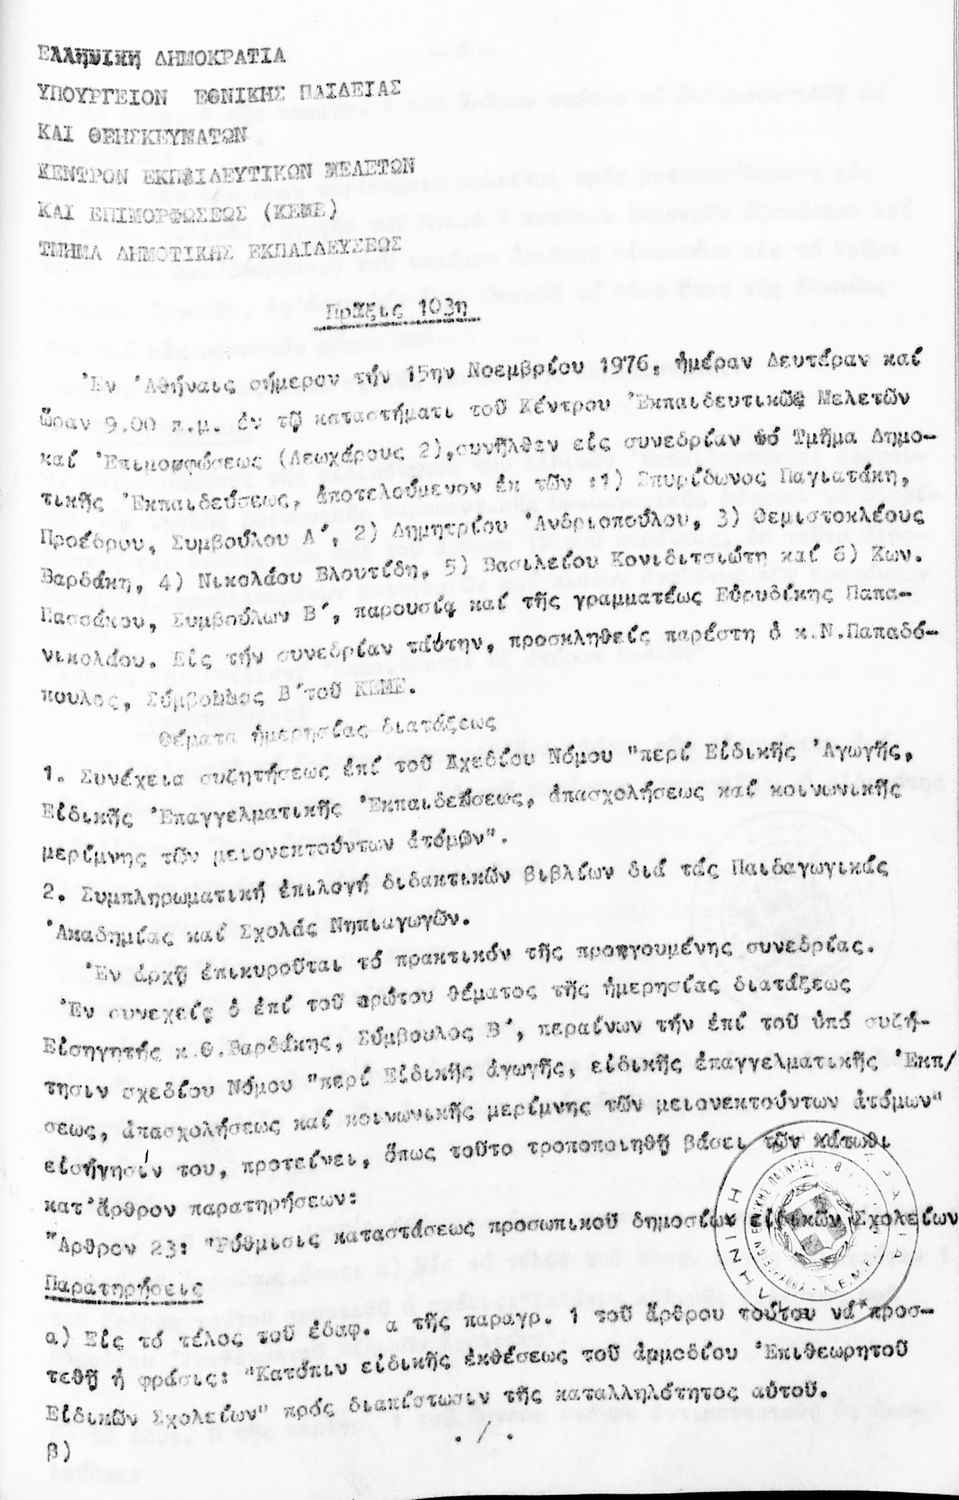 ΕΛΛΗΝΙΚΗ ΔΗΜΟΚΡΑΤΙΑ
ΥΠΟΥΡΓΕΙΟΝ ΕΘΝΙΚΗΣ ΠΑΙΔΕΙΑΣ
ΚΑΙ ΘΡΗΣΚΕΥΜΑΤΩΝ
ΚΕΝΤΡΟΝ ΕΚΠΑΙΔΕΥΤΙΚΩΝ ΜΕΛΕΤΩΝ
ΚΑΙ ΕΠΙΜΟΡΦΩΣΕΩΣ (ΚΕΜΕ)
ΤΜΗΜΑ ΔΗΜΟΤΙΚΗΣ ΕΚΠΑΙΔΕΥΣΕΩΣ
Πρᾶξις 103η
Ἐν Ἀθήναις σήμερον τήν 15ην Νοεμβρίου 1976, ἡμέραν Δευτέραν καί
ὥραν 9.00 π.μ. ἐν τῷ καταστήματι τοῦ Κέντρου Ἐκπαιδευτικῶν Μελετῶν
καί Ἐπιμορφώσεως (Λεωχάρους 2),συνῆλθεν εἰς συνεδρίαν τό Τμῆμα Δημο-
τικῆς Ἐκπαιδεύσεως, ἀποτελούμενον ἐκ τῶν :1) Σπυρίδωνος Παγιατάκη,
Προέδρου, Συμβούλου Α΄, 2) Δημητρίου Ἀνδριοπούλου, 3) Θεμιστοκλέους
Βαρδάκη, 4) Νικολάου Βλουτίδη, 5) Βασιλείου Κονιδιτσιώτη καί 6) Κων.
Πασσάκου, Συμβούλων Β΄, παρουσίᾳ καί τῆς γραμματέως Εὐρυδίκης Παπα-
νικολάου. Εἰς τήν συνεδρίαν ταύτην, προσκληθείς παρέστη ὁ κ.Ν.Παπαδό-
πουλος, Σύμβουλος Β΄τοῦ ΚΕΜΕ.
Θέματα ἡμερησίας διατάξεως
1. Συνέχεια συζητήσεως ἐπί τοῦ Σχεδίου Νόμου "περί Εἰδικῆς Ἀγωγῆς,
Εἰδικῆς Ἐπαγγελματικῆς Ἐκπαιδεύσεως, ἀπασχολήσεως καί κοινωνικῆς
μερίμνης τῶν μειονεκτούντων ἀτόμων".
2. Συμπληρωματική ἐπιλογή διδακτικῶν βιβλίων διά τάς Παιδαγωγικάς
Ἀκαδημίας καί Σχολάς Νηπιαγωγῶν.
Ἐν ἀρχῇ ἐπικυροῦται τό πρακτικόν τῆς προηγουμένης συνεδρίας.
Ἐν συνεχείᾳ ὁ ἐπί τοῦ πρώτου θέματος τῆς ἡμερησίας διατάξεως
Εἰσηγητής κ.Θ.Βαρδάκης, Σύμβουλος Β΄, περαίνων τήν ἐπί τοῦ ὑπό συζή-
τησιν σχεδίου Νόμου "περί Εἰδικῆς ἀγωγῆς, εἰδικῆς ἐπαγγελματικῆς Ἐκπ/
σεως, ἀπασχολήσεως καί κοινωνικῆς μερίμνης τῶν μειονεκτούντων ἀτόμων"
εἰσήγησίν του, προτείνει, ὅπως τοῦτο τροποποιηθῇ βάσει τῶν κάτωθι
κατ΄ἄρθρον παρατηρήσεων:
"Ἄρθρον 23: "Ρύθμισις καταστάσεως προσωπικοῦ δημοσίων εἰδικῶν Σχολείων
Παρατηρήσεις
α) Εἰς τό τέλος τοῦ ἐδαφ. α τῆς παραγρ. 1 τοῦ ἄρθρου τούτου νά προσ-
τεθῇ ἡ φράσις: "Κατόπιν εἰδικῆς ἐκθέσεως τοῦ ἁρμοδίου Ἐπιθεωρητοῦ
Εἰδικῶν Σχολείων" πρός διαπίστωσιν τῆς καταλληλότητος αὐτοῦ.
β)
. / .